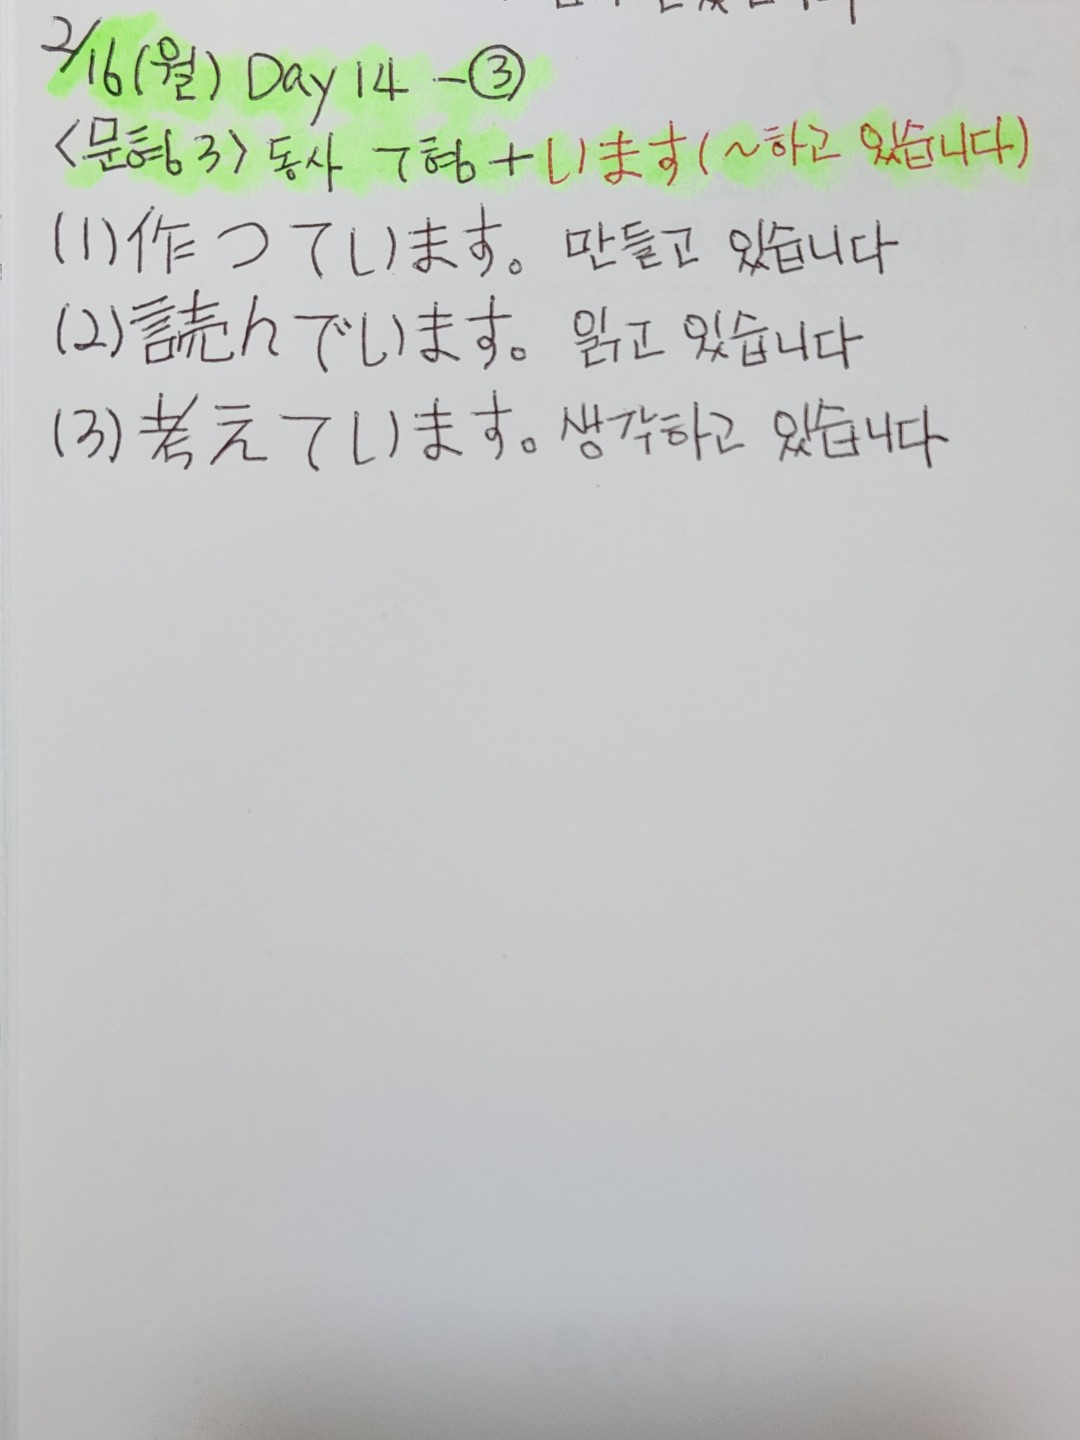 2/16(월) Day 14 -③
<문형3> 동사 て형 + います(~하고 있습니다)
(1)作っています。 만들고 있습니다
(2)読んでいます。 읽고 있습니다
(3)考えています。 생각하고 있습니다